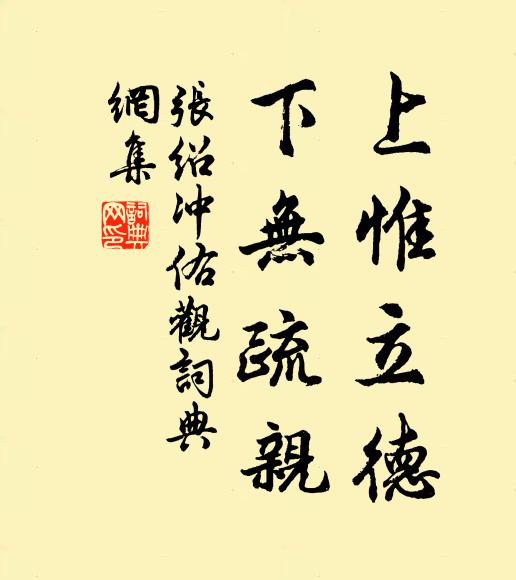 上惟立德
下無疏親
張紹沖俗觀詞典
網集
詞典
网印